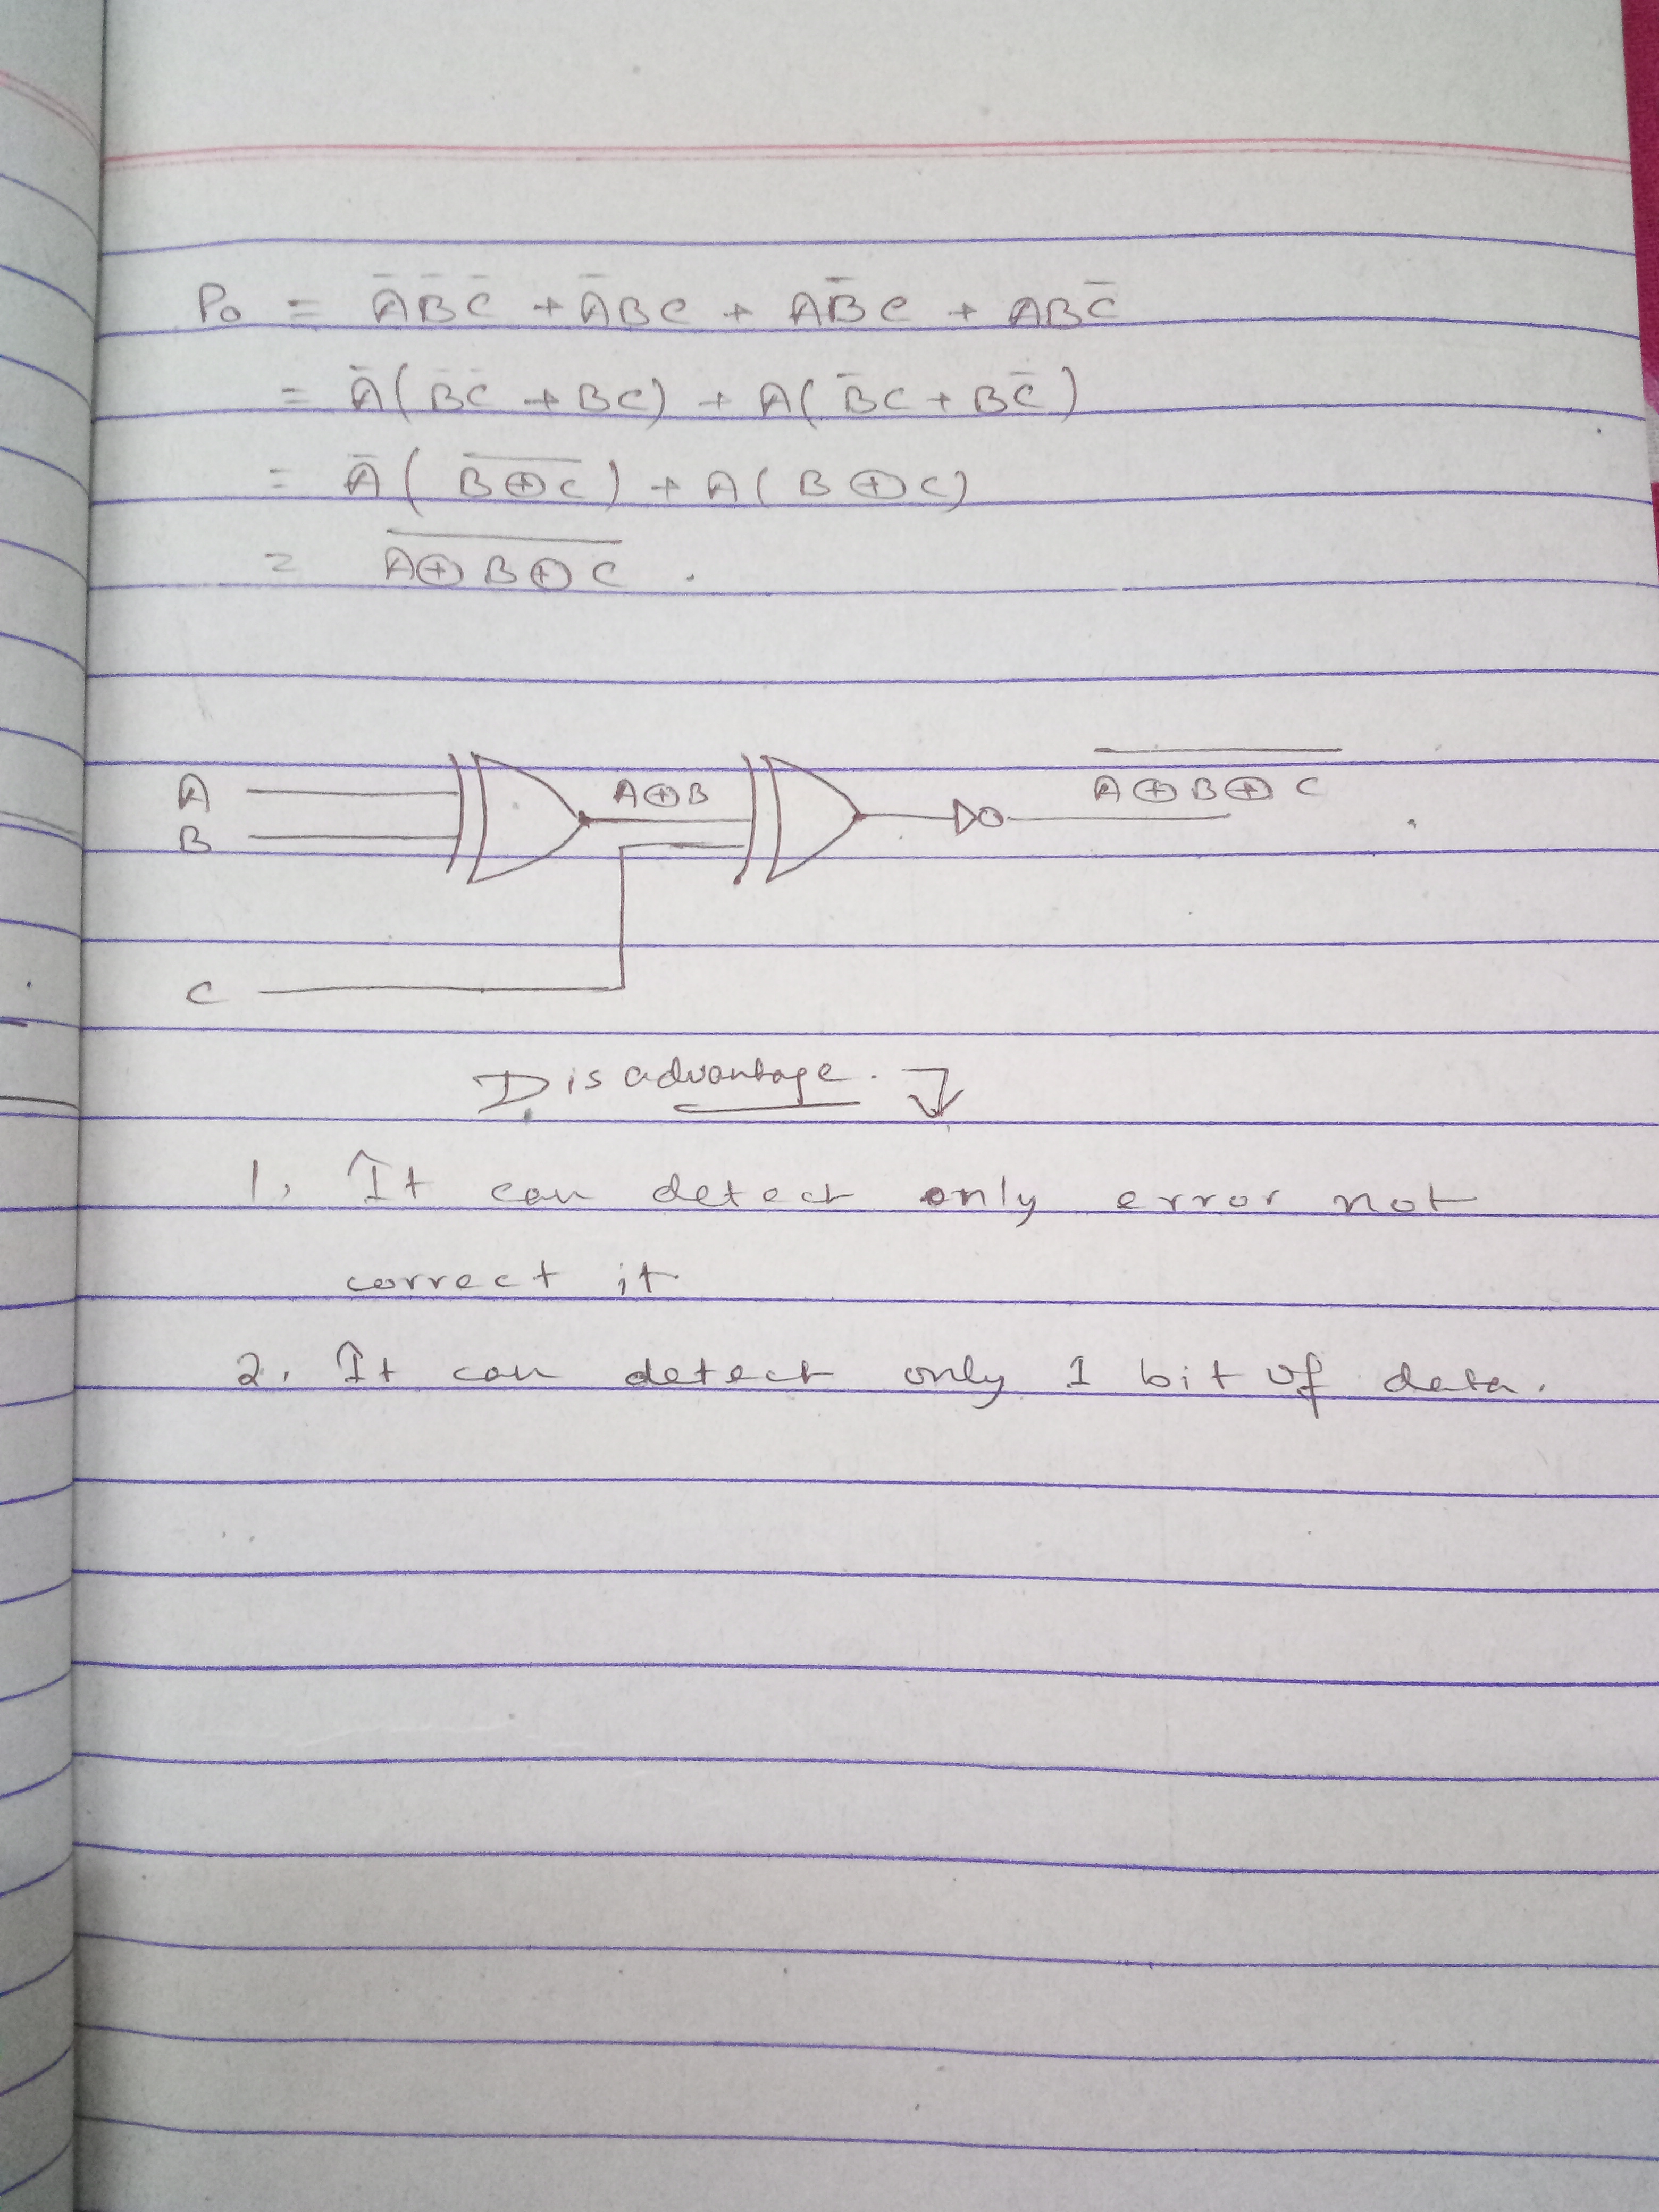 P₀ = A̅B̅C̅ + A̅BC + AB̅C + ABC̅
= A̅(B̅C̅ + BC) + A(B̅C + BC̅)
= A̅(B̅ ⊕̅ C̅) + A(B⊕C)
= A̅ ⊕̅ B̅ ⊕̅ C̅ .
A̅ ⊕̅ B̅ ⊕̅ C̅
A A⊕B
B
C
Disadvantage.
1. It can detect only error not
correct it
2. It can detect only 1 bit of data.